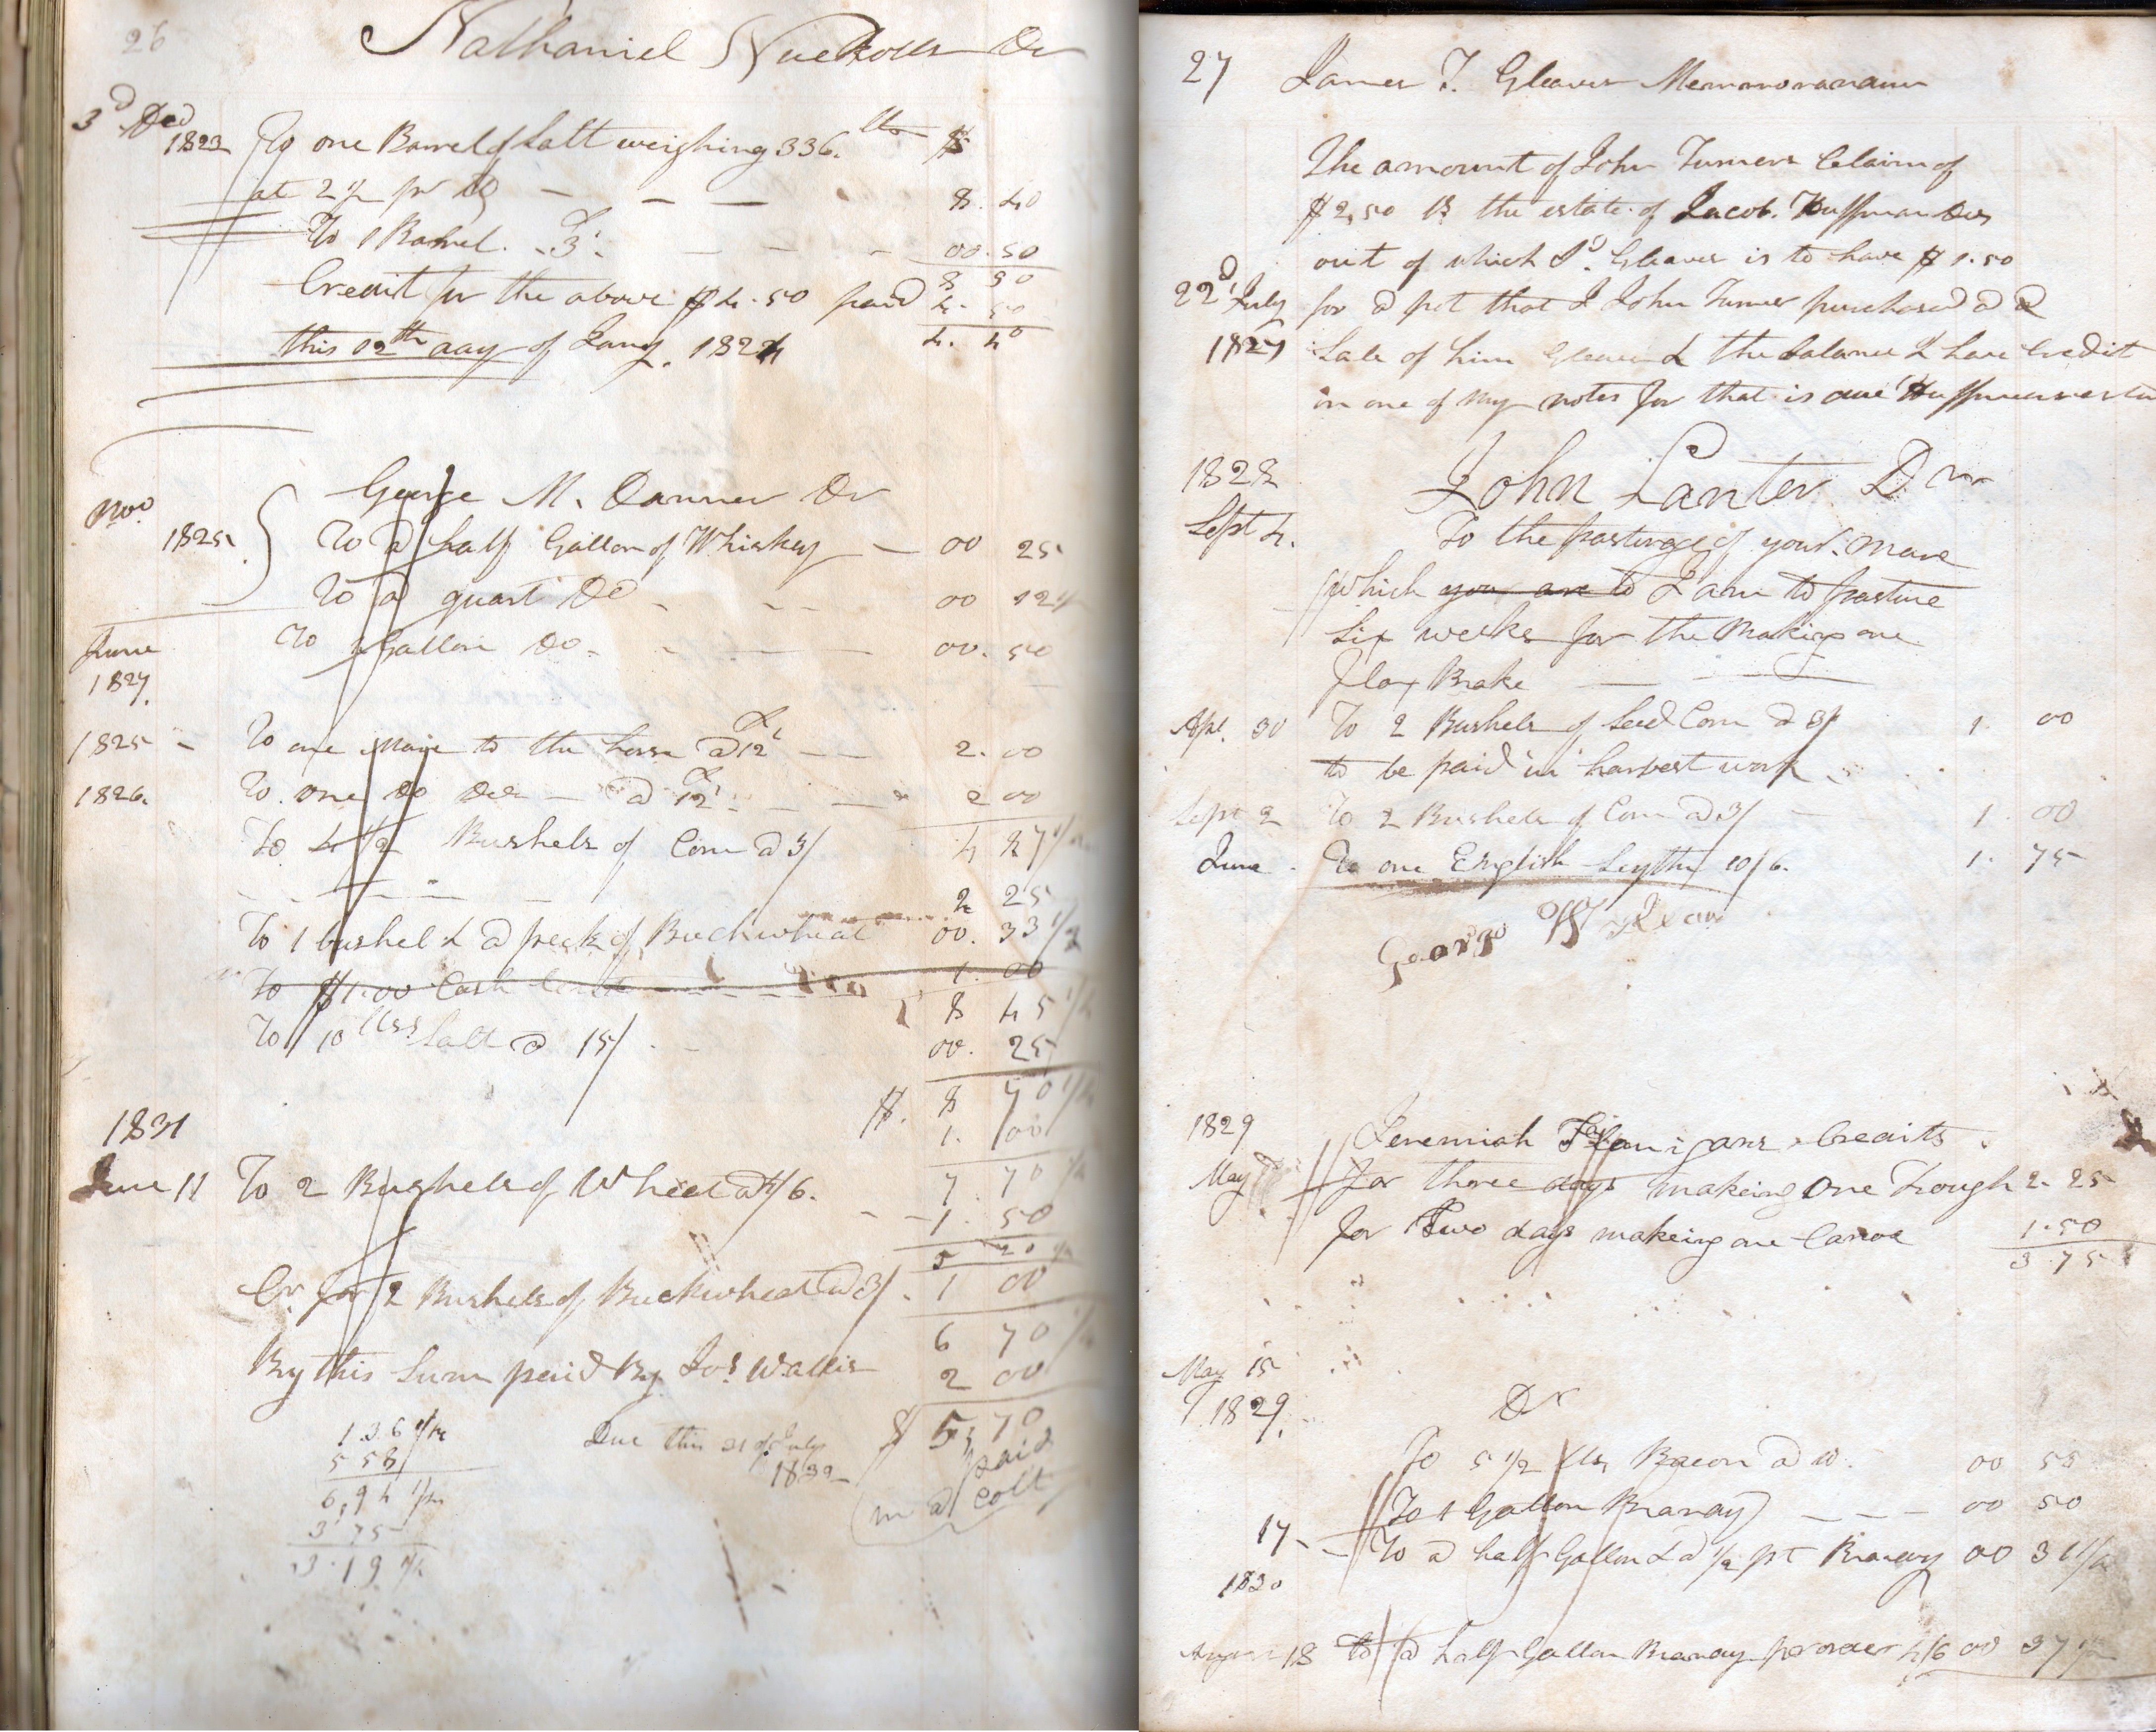 26
Nathaniel Nuckolls Dr
3d Decd
1823 To one Barrel of Salt weighing 336. lbs $
at 2½ pr lb — — — 8. 40
To 1 Barrel. 3/. — — — 00.50
8 90
Credit for the above $4.50 paid 4. 50
this 12th day of Jany. 1824 4. 40
George M. Danner Dr
Nov.
1825. To a half Gallon of Whiskey — 00 25
To a quart Do - -- 00 12½
June
1827. To 1 Gallon Do - — 00. 50
1825 - To one Mare to the horse @ 12/ — 2.00
1826. To one do Do — @ 12/ — 2 00
4 87½
To 4½ Bushels of Corn @ 3/
2 25
To 1 bushel & a peck of Buckwheat 00. 33½
To $1.00 Cash lent 1. 00
8 45½
To 10 lbs Salt @ 15/ 00. 25
$. 8 70½
1. 00
7 70½
1831
June 11 To 2 Bushels of Wheat at 4/6. - 1. 50
5 20½
Cr for 2 Bushels of Buckwheat @ 3/. 1 00
6 70½
By this Sum paid By Jos Wallis 2 00
$ 5,70
Due this 21 of July 1832
paid
in a colt
136½
558
6,94½
3 75
3.19½
27 James T. Gleaves Memmorandum
The amount of John Turners Claim of
$2,50 vs the estate of Jacob. Huffman Des
out of which Sd. Gleaves is to have $1.50
22d July for a pot that I John Turner purchased a a
1827 Sale of him Gleaves & the balance I have Credit
on one of my notes for that is due Huffmans
1828 John Lanter Dr
Sept 4. To the pasturage of your mare
Which you are to I am to pasture
Six weeks for the Making one
Flax Brake
Apl. 30 To 2 Bushels of Seed Corn @ 3/ 1. 00
to be paid in harvest work
Sept 2 To 2 Bushels of Corn @ 3/ 1. 00
June. To one English Scythe 10/6. 1. 75
George W
1829 Jeremiah Flanigans Credits.
May for three days makeing One Trough 2. 25
for Two days makeing one Canoe 1.50
3 75
May 15
1829. Dr
To 5½ lbs Bacon @ 10. 00 55
To 1 Gallon Brandy — — — 00 50
17 - To a half Gallon & a ½ pt Brandy 00 31½
1830
August 18 to a half Gallon Brandy pr order 4/6 00 37½